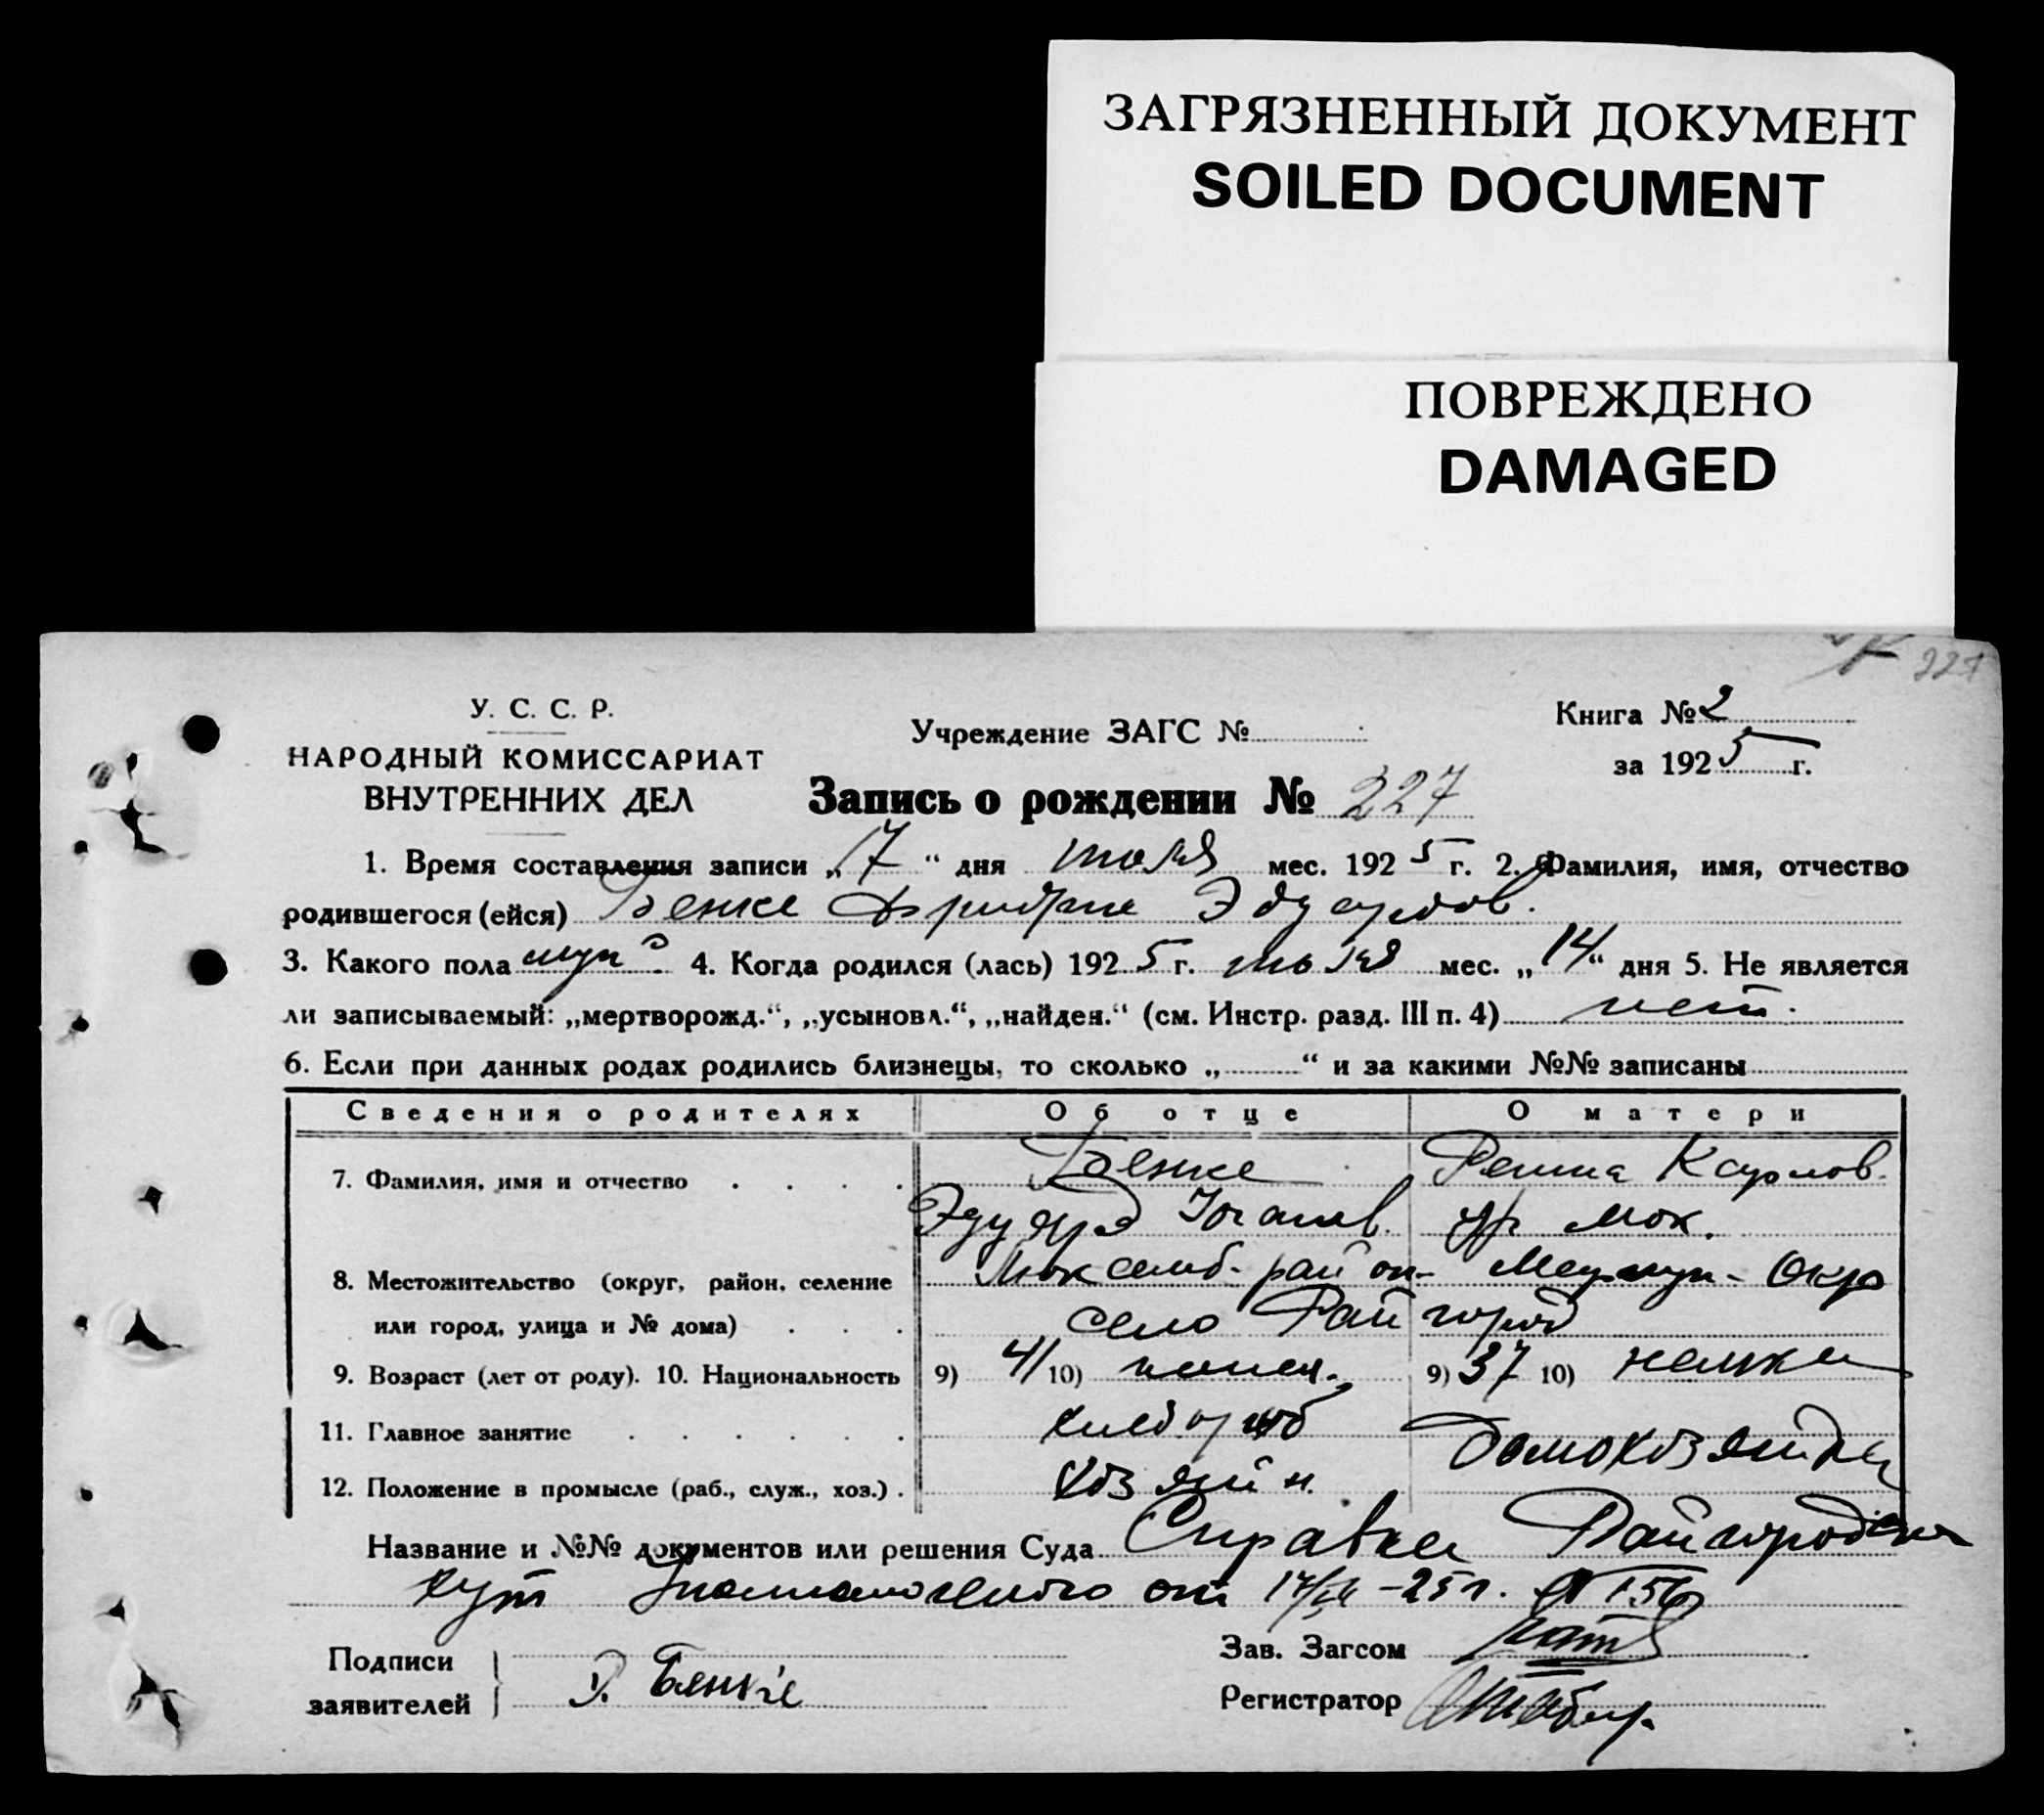 ЗАГРЯЗНЕННЫЙ ДОКУМЕНТ
SOILED DOCUMENT
ПОВРЕЖДЕНО
DAMAGED
227
У. С. С. Р.
НАРОДНЫЙ КОМИССАРИАТ
ВНУТРЕННИХ ДЕЛ
Учреждение ЗАГС №
Книга № 2
за 1925 г.
Запись о рождении № 227
1. Время составления записи „17“ дня июля мес. 1925 г. 2. Фамилия, имя, отчество
родившегося (ейся) Бенке Эдуардов.
3. Какого пола муж. 4. Когда родился (лась) 1925 г. июля мес. „14“ дня 5. Не является
ли записываемый: „мертворожд.“, „усыновл.“, „найден.“ (см. Инстр. разд. III п. 4) нет.
6. Если при данных родах родились близнецы, то сколько „ “ и за какими №№ записаны
Сведения о родителях Об отце О матери
7. Фамилия, имя и отчество Бенке Карлов.
Эдуард Иоганов.
8. Местожительство (округ, район, селение район Окр
или город, улица и № дома) село Райгород
9. Возраст (лет от роду). 10. Национальность 9) 41 10) немец. 9) 37 10) немка
11. Главное занятие хлебороб домохозяйка
12. Положение в промысле (раб., служ., хоз.) хозяин
Название и №№ документов или решения Суда Справка Райгородск
от 17/VII-25 г. № 156
Подписи
заявителей Э. Бенке
Зав. Загсом
Регистратор